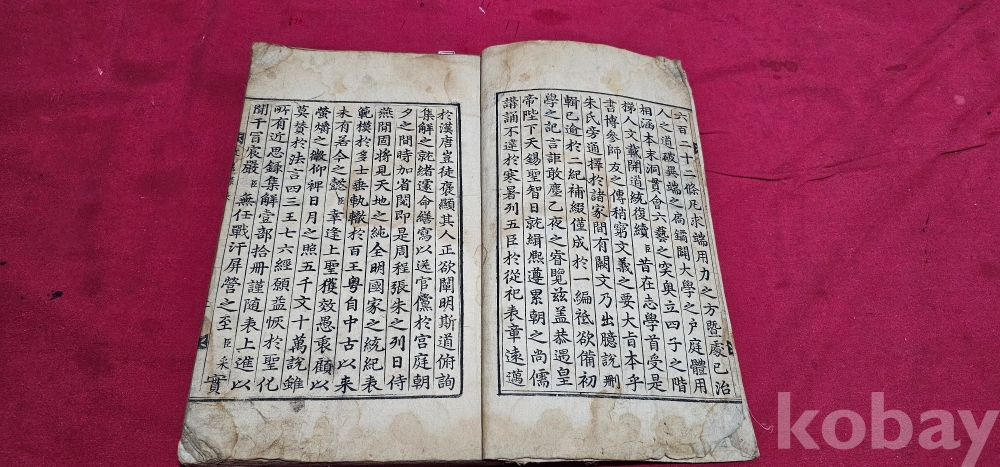 六百二十二條凡求端用力之方暨處已治
人之道破異端之扃鐍闢大學之户庭體用
相涵本末洞貫會六藝之突奥立四子之階
梯人文載開道統復續臣昔在志學首受是
書博參師友之傳稍窮文義之要大旨本乎
朱氏旁通擇於諸家間有闕文乃出臆說刪
輯已逾於二紀補綴僅成於一編祗欲備初
學之記言詎敢塵乙夜之睿覽兹盖恭遇皇
帝陛下天錫聖智日就緝熙遵累朝之尚儒
講誦不違於寒暑列五臣於從祀表章遠邁
於漢唐豈徒褒顯其人正欲闡明斯道俯詢
集解之就緒遽命繕寫以送官儻於宮庭朝
夕之間時加省閱即是周程張朱之列日侍
燕閒固將見天地之純全明國家之統紀表
範模於多士垂軌轍於百王粤自中古以来
未有若今之懿臣幸逢上聖獲效愚衷顧以
螢爝之微仰裨日月之照五千文十萬說雖
莫贊於法言四三王七六經願益恢於聖化
所有近思録集解壹部拾冊謹随表上進以
聞干冒宸嚴臣無任戰汗屏營之至臣采實
kobay